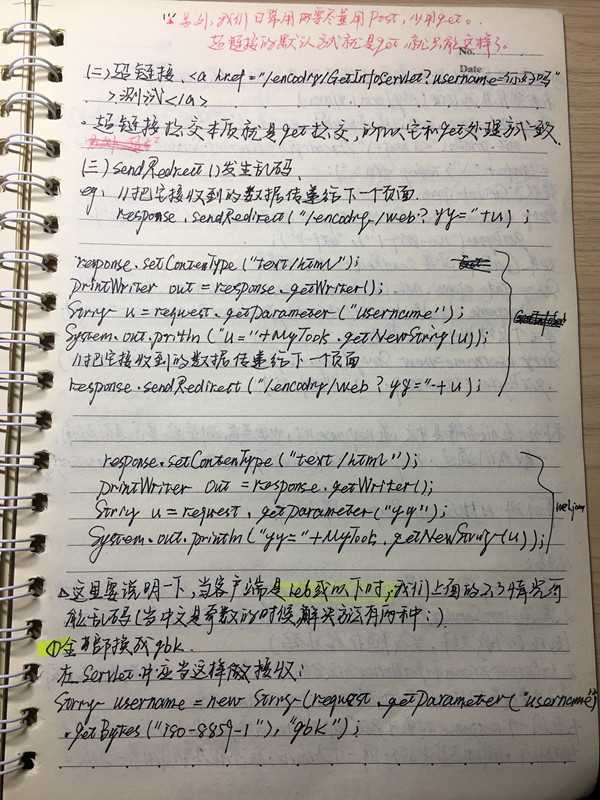 尽量用post,少用get。
超链接的默认方式就是get,就只能这样了。
No.
Date
(二)超链接 <a href="/encoding/GetInfoServlet?username=你好吗"
>测试</a>
·超链接提交本质就是get提交,所以它和get处理方式一致.
(三) sendRedirect()发生乱码.
eg. //把它接收到的数据传递给下一个页面
response.sendRedirect("/encoding/web?yy="+u);
response.setContenType("text/html");
printWriter out = response.getWriter();
String u=request.getParameter("username");
System.out.println("u="+MyTools.getNewString(u));
//把它接收到的数据传递给下一个页面
response.sendRedirect("/encoding/web?yy="+u);
response.setContenType("text/html");
printWriter out = response.getWriter();
String u=request.getParameter("yy");
System.out.println("yy="+MyTools.getNewString(u));
△这里要说明一下,当客户端是ie6或以下时,我们上面的2.3.4
能乱码(当中文是奇数的时候,解决方法有两种:)
①全部换成gbk.
在Servlet中应当这样做接收:
String username = new String(request.getParameter("username")
.getBytes("iso-8859-1"),"gbk");